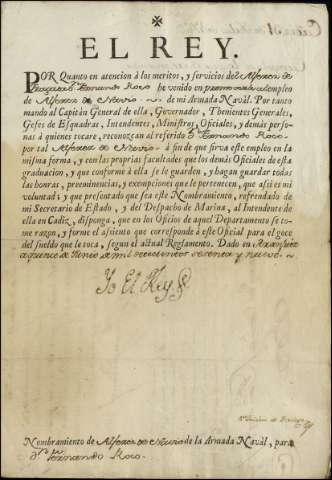 EL REY.
POR Quanto en atencion à los meritos, y servicios del Alferez de
Fragata Dn. Fernando Roco he venido en promoverle al empleo
de Alferez de Navio de mi Armada Navàl. Por tanto
mando al Capitàn General de ella, Governador, Thenientes Generales,
Gefes de Esquadras, Intendentes, Ministros, Oficiales, y demàs perso-
nas à quienes tocare, reconozcan al referido Dn. Fernando Roco
por tal Alferez de Navio à fin de que sirva este empleo en la
misma forma, y con las proprias facultades que los demàs Oficiales de esta
graduacion, y que conforme à ella se le guarden, y hagan guardar todas
las honras, preeminencias, y exempciones que le pertenecen, que assi es mi
voluntad; y que presentado que sea este Nombramiento, refrendado de
mi Secretario de Estado, y del Despacho de Marina, al Intendente de
ella en Cadiz, disponga, que en los Oficios de aquel Departamento se to-
me razon, y forme el assiento que corresponde à este Oficial para el goce
del sueldo que le toca, segun el actual Reglamento. Dado en Aranjuez
à quince de Junio de mil setecientos sesenta y nueve.
Yo El Rey
Nombramiento de Alferez de Navio de la Armada Navàl, para
Dn. Fernando Roco.